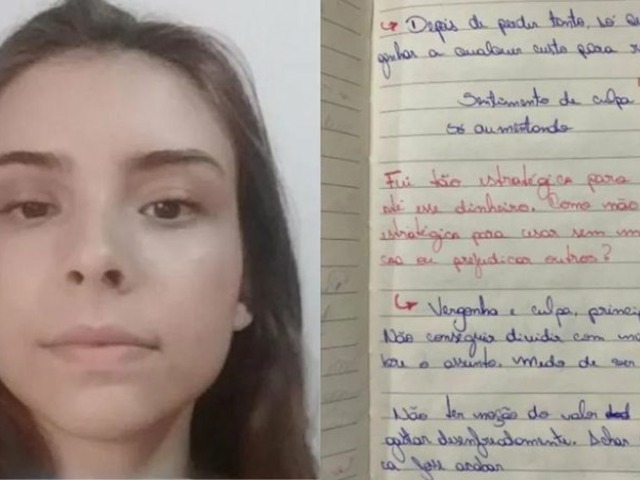 ↳ Depois de perder tanto, só
ganhar a qualquer custo para
Sentimento de culpa
só aumentando
Fui tão estratégica para
até esse dinheiro. Como não
estratégica para usar sem
ou prejudicar outros?
↳ Vergonha e culpa,
Não conseguia dividir com
o assunto. Medo de ser
Não ter noção do valor
gastar desenfreadamente. Achar